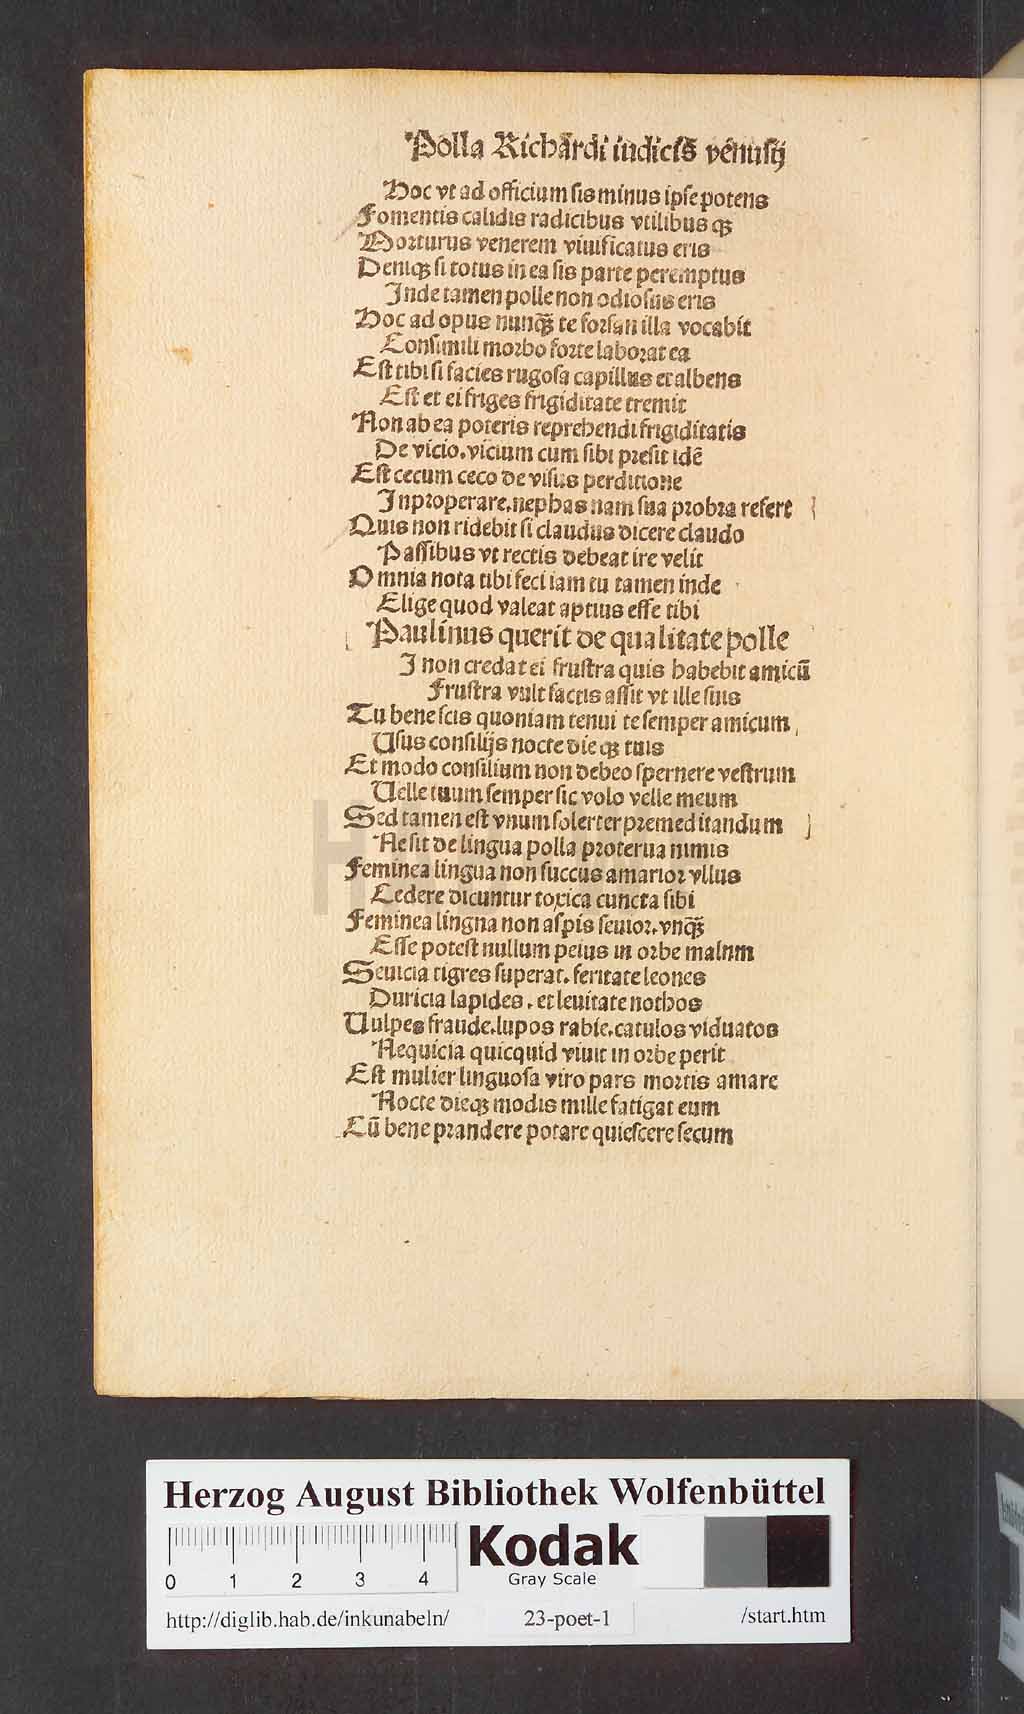 Polla Richardi iudicis̄ venusij
Hoc vt ad officium sis minus ipse potens
Fomentis calidis radicibus vtilibusqꝫ
Morturus venerem viuificatus eris
Deniqꝫ si totus in ea sis parte peremptus
Inde tamen polle non odiosus eris
Hoc ad opus nunqꝫ̄ te forsan illa vocabit
Consimili morbo forte laborat ea
Est tibi si facies rugosa capillus et albens
Est et ei friges frigiditate tremit
Non ab ea poteris reprehendi frigiditatis
De vicio. vicium cum sibi presit idē
Est cecum ceco de visus perditione
Inproperare. nephas nam sua probra refert
Quis non ridebit si claudus dicere claudo
Passibus vt rectis debeat ire velit
Omnia nota tibi feci iam tu tamen inde
Elige quod valeat aptius esse tibi
Paulinus querit de qualitate polle
I non credat ei frustra quis habebit amicū
Frustra vult factis assit vt ille suis
Tu bene scis quoniam tenui te semper amicum
Usus consilijs nocte dieqꝫ tuis
Et modo consilium non debeo spernere vestrum
Uelle tuum semper sic volo velle meum
Sed tamen est vnum solerter premeditandum
Ne sit de lingua polla proterua nimis
Feminea lingua non succus amarior vllus
Cedere dicuntur toxica cuncta sibi
Feminea lingna non aspis seuior. vnqꝫ̄
Esse potest nullum peius in orbe malnm
Seuicia tigres superat. feritate leones
Duricia lapides. et leuitate nothos
Uulpes fraude. lupos rabie. catulos viduatos
Nequicia quicquid viuit in orbe perit
Est mulier linguosa viro pars mortis amare
Nocte dieqꝫ modis mille fatigat eum
Cū bene prandere potare quiescere secum
Herzog August Bibliothek Wolfenbüttel
0 1 2 3 4
Kodak
Gray Scale
http://diglib.hab.de/inkunabeln/ 23-poet-1 /start.htm